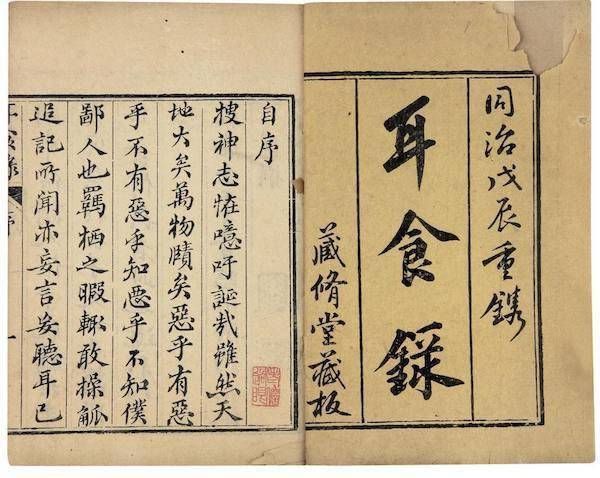 同治戊辰重鐫
耳食錄
藏脩堂藏板
自序
搜神志怪噫吁誕哉雖然天
地大矣萬物賾矣惡乎有惡
乎不有惡乎知惡乎不知僕
鄙人也羈栖之暇輒敢操觚
追記所聞亦妄言妄聽耳已
耳食錄
序
一